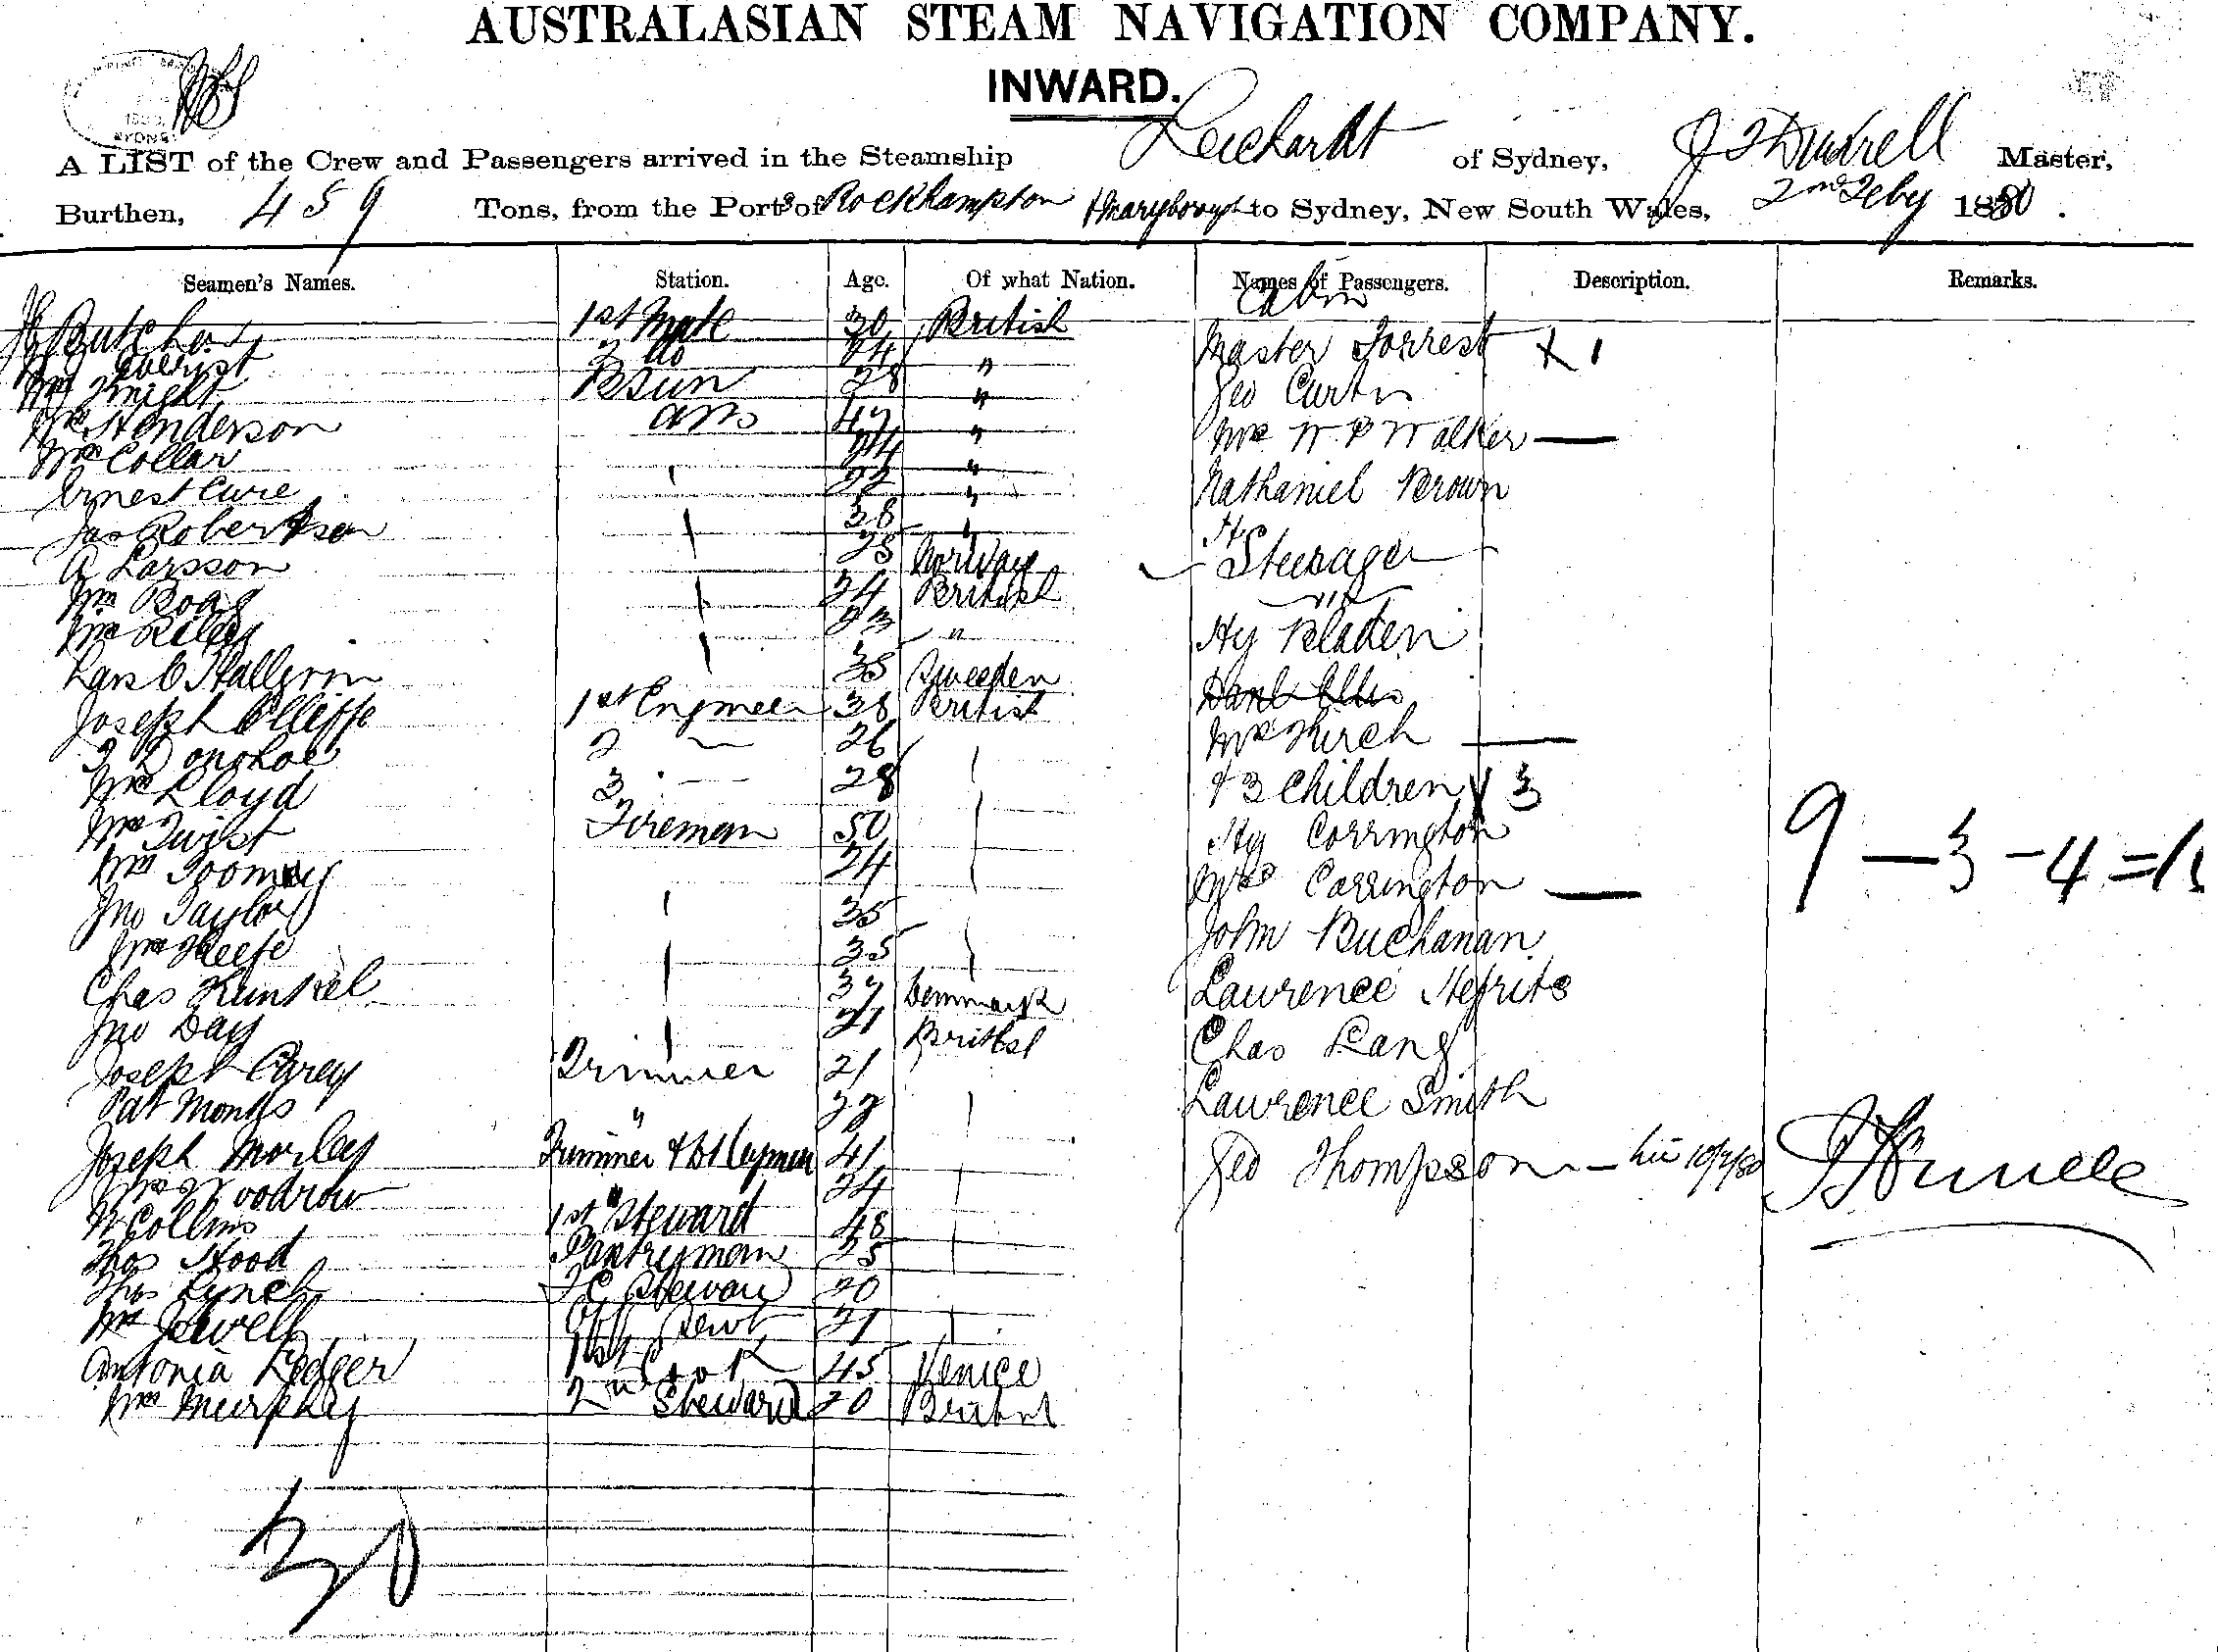 AUSTRALASIAN STEAM NAVIGATION COMPANY.
INWARD.
A LIST of the Crew and Passengers arrived in the Steamship Leichardt of Sydney, Master,
Burthen, 459 Tons, from the Ports of Rockhampton & Maryborough to Sydney, New South Wales, 2nd Feby 1880.
Seamen's Names. Station. Age. Of what Nation. Names of Passengers. Description. Remarks.
Cabin
Butcher 1st Mate 30 British
2 do 24 "
Wm Knight Bsun 28 "
Wm Henderson AB 47 "
Wm Collar 24 "
Ernest Cure 22 "
Jas Robertson 38 "
A Larsson 25 Norway
Wm Boag 24 British
Wm Riley 23 "
Lars O Hallgron 35 Sweeden
Joseph Olliffe 1st Engineer 38 British
T Donohoe 2 — 26
Wm Lloyd 3 — 28
Wm Twist Fireman 50
Wm Toomey 24
Jno Taylor 35
Wm Keefe 35
Chas Kunkel 37 Denmark
Jno Day 21 British
Joseph Carey Trimmer 21
Pat Monks " 22
Joseph Morley Trimmer & 41
Wm Woodrow " 24
W Collins 1st Steward 48
Thos Hood Pantryman 25
Thos Lynch F C Steward 20
Wm Jewell Sewt 21
Antonia Ledger 1st Cook 45 Venice
Wm Murphy 2nd Steward 20 British
30
Master Forrest X 1
Geo Curtis
Mrs W P Walker —
Nathaniel Brown
Steerage
Hy Bladen
Danl Ellis
Mrs Kirch —
& 3 Children X 3
Hy Corrington
Mrs Carrington —
John Buchanan
Lawrence Hefrits
Chas Lang
Lawrence Smith
Geo Thompson
9 — 3 - 4 = 16